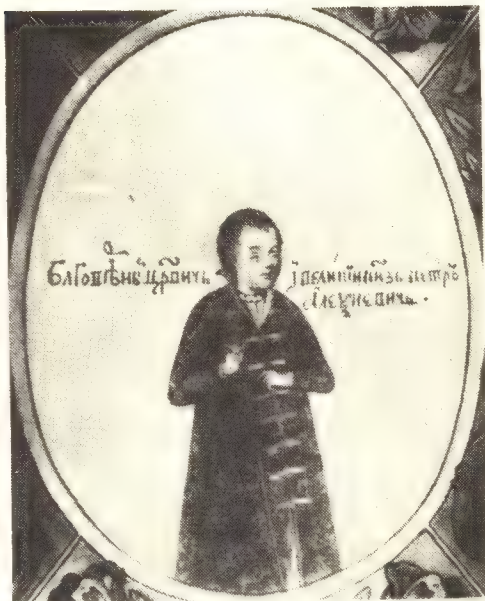 Блговѣрны црвичь і великиі кнзь петръ
Алеѯиевичь.